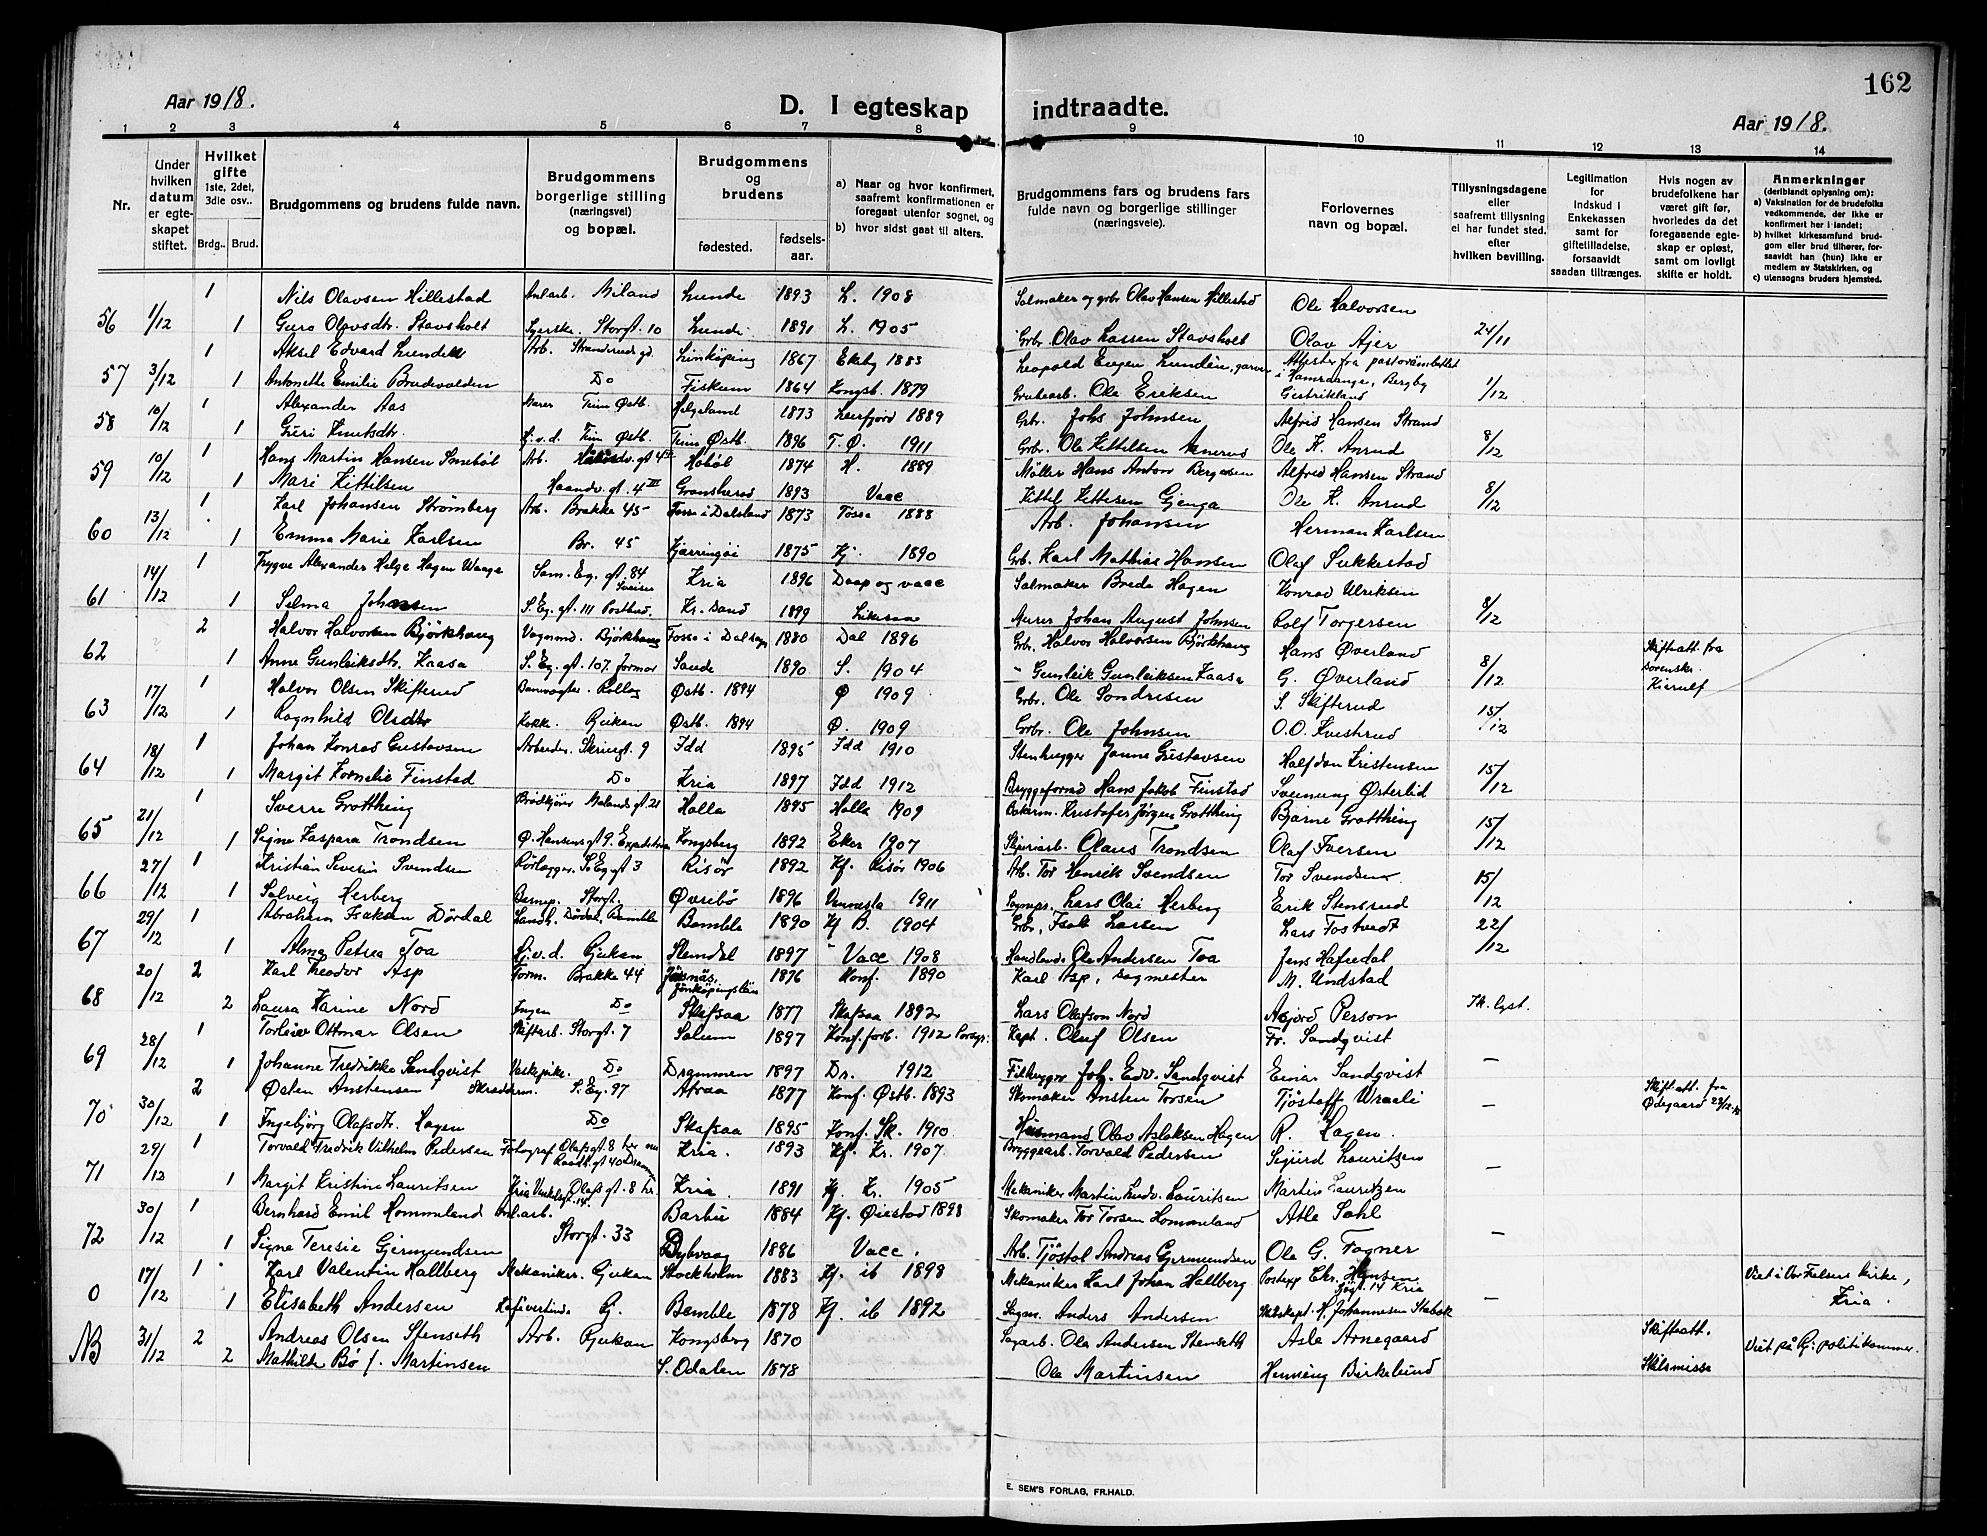 162
Aar 1918.
D. I egteskap indtraadte.
Aar 1918.
1 2 3 4 5 6 7 8 9 10 11 12 13 14
Nr.
Under hvilken datum er egteskapet stiftet.
Hvilket gifte 1ste, 2det, 3die osv..
Brdg.. Brud.
Brudgommens og brudens fulde navn.
Brudgommens borgerlige stilling (næringsvei) og bopæl.
Brudgommens og brudens
fødested.
fødselsaar.
a) Naar og hvor konfirmert, saafremt konfirmationen er foregaat utenfor sognet, og
b) hvor sidst gaat til alters.
Brudgommens fars og brudens fars fulde navn og borgerlige stillinger (næringsveie).
Forlovernes navn og bopæl.
Tillysningsdagene eller saafremt tillysning ei har fundet sted, efter hvilken bevilling.
Legitimation for indskud i Enkekassen samt for giftetilladelse, forsaavidt saadan tiltrænges.
Hvis nogen av brudefolkene har været gift før, hvorledes da det foregaaende egteskap er opløst, samt om lovligt skifte er holdt.
Anmerkninger (deriblandt oplysning om):
a) Vaksination for de brudefolks vedkommende, der ikke er konfirmert her i landet;
b) hvilket kirkesamfund brudgom eller brud tilhører, forsaavidt han (hun) ikke er medlem av Statskirken, og
c) utensogns bruders hjemsted.
1 Nils Olavsen Hillestad Anl.arb. Miland Lunde 1893 L. 1908 Salmaker og grbr Olav Hansen Hillestad Ole Halvorsen
56 1/12 1 Guro Olavsdtr. Stavsholt Syerske. Storgt. 10 Lunde 1891 L. 1905 Grbr. Olav Lassen Stavsholt Olav Ajer 24/11
1 Aksel Edvard Lundell Arb. Linköping 1867 Ekeby 1883 Leopold Eugen Lundén, garver Attester fra pastorämbetet
57 3/12 1 Antonette Emilie Brudevolden Do Fiskum 1864 Kongsb. 1879 Grubearb. Ole Eriksen i Hamraange, Bergby Gestrikland 1/12
1 Alexander Aas Murer Tinn Østb. Helgeland 1873 Leirfjord 1889 Grbr. Johs Johnsen Alfred Hansen Strand
58 10/12 1 Guri Knutsdtr. Hj.v.d. Tinn Østb. Tinn Østb. 1896 T.Ø. 1911 Grbr. Ole Kittelsen Ole K. Anrud 8/12
1 Hans Martin Hansen Smebøl Arb. Haandv. gt 4 II Hobøl 1874 H. 1889 Møller Hans Anton Bergersen Alfred Hansen Strand
59 10/12 1 Mari Kittilsen Haandv. gt. 4 III Gransherad 1893 Vacc Kittel Kittilsen Gjenga Ole K. Anrud 8/12
1 Karl Johansen Strömberg Arb. Brakke 45 Tösse i Dalsland 1873 Tösse 1888 Arb. Johansen Herman Karlsen
60 13/12 1 Emma Marie Karlsen Br. 45 Kjerringøi 1875 Kj. 1890 Grb. Karl Mathias Hansen Olaf Sukkestad
1 Trygve Alexander Helge Hagen Waage Sam. Eg. gt. 84 Kria 1896 Daap og vacc Salmaker Brede Hagen Konrad Ulriksen
61 14/12 1 Selma Johansen S. Eg. gt. 111 Postbud. Kr. Sand 1899 Likesaa Murer Johan August Johnsen Rolf Torgersen 8/12
2 Halvor Halvorsen Bjørkhaug Vognmd. Bjørkhaug 1880 Dal 1896 Grb. Halvor Halvorsen Bjørkhaug Hans Øverland Skifteatt. fra
62 1 Anne Gunleiksdtr. Kaasa S. Eg. gt. 107. Saude 1890 S. 1904 " Gunleik Gunleiksen Kaasa G. Øverland 8/12 sorenskr. Kierulf
1 Halvor Olsen Skifterud Banevogter. Rollag Østb. 1894 Ø 1909 Grbr. Ole Sondresen S. Skifterud
63 17/12 1 Ragnhild Olsdtr Kokke. Rjukan Østb. 1894 Ø. 1909 Grbr. Ole Johnsen O.O. Kvestrud 15/12
1 Johan Konrad Gustavsen Arbeider. Skriugt. 9 Idd 1895 Idd 1910 Stenhugger Janne Gustavsen Halfdan Kristensen
64 18/12 1 Margit Kornelie Finstad Do Kria 1897 Idd 1912 Bryggeformd Hans Jakob Finstad Sveinung Østerlid 15/12
1 Sverre Grotthing Brødkjører Melands gt. 21 Holla 1895 Holla 1909 Bakerm. Kristofer Jørgen Grotthing Bjarne Grotthing
65 21/12 1 Signe Kaspara Trondsen Ø. Hansens gt 9. Expeditrice Kongsberg 1892 Eker 1907 Skjæriarb. Olaus Trondsen Olaf Iversen 15/12
1 Kristian Severin Svendsen Rørlægger. S. Eg. gt 3 Risør 1892 Kf. Risør 1906 Arb. Tor Henrik Svendsen Tor Svendsen
66 27/12 1 Solveig Herberg Storgt. Øvrebø 1896 Vennesla 1911 Lars Olai Herberg Erik Stensrud 15/12
1 Abraham Isaksen Dördal Landh. Dördal, Bamble Bamble 1890 Kf B. 1904 Grbr, Isak Larsen Lars Tostvedt
67 29/12 1 Alma Petrea Toa Hj.v.d. Rjukan Slemdal 1897 Vacc 1908 Handlende Ole Andersen Toa Jens Hafredal 22/12
2 Karl Theodor Asp Form. Brakke 44 Jönköpingslän 1876 Konf. 1890 Karl Asp, sagmester M. Undstad
68 20/12 2 Laura Karine Nord Ingen Do Skafsaa 1877 Skafsaa 1892 Lars Olafson Nord Person Th. lyst.
1 Torleiv Ottmar Olsen Skiftarb. Storgt. 7 Solum 1897 Konf. forb. 1912 Porsgr. Kapt. Oluf Olsen Fr. Sandqvist
69 28/12 1 Johanne Fredrikke Sandqvist Vaskepike. Do Drammen 1897 Dr. 1912 Filhugger Joh. Edv. Sandqvist Einar Sandqvist —
2 Østen Anstensen Skrædderm. S. Eg. 97 Atraa 1877 Konf. Østb. 1893 Skomaker Ansten Torsen Tjøstolf Vraali Skifteatt. fra
70 30/12 1 Ingebjörg Olafsdtr. Hagen Do Skafsaa 1895 Konf. Sk. 1910 Husmand Olav Aslaksen Hagen R. Hagen — Ødegaard 23/12-18
1 Torvald Fredrik Vilhelm Pedersen Fotograf Olafsgt. 8 Kria. 1893 Kf. Kr. 1907 Bryggearb. Torvald Pedersen Sigurd Lauritzen
71 29/12 1 Margit Kristine Lauritsen Kria Olafs gt. 8 Kria. 1891 Kf. Kr. 1905 Mekaniker Martin Ludv. Lauritsen Martin Lauritzen —
1 Bernhard Emil Hommeland Anl.arb. Barbu 1884 Kf. Øiestad 1898 Skomaker Tor Torsen Hommeland Atle Sahl
72 30/12 1 Signe Teresie Gjermundsen Storgt. 33 Dybvaag 1886 Vacc. Arb. Tjöstol Andreas Gjermundsen Ole G. Fagner —
1 Karl Valentin Hallberg Mekaniker. Rjukan Stockholm 1883 Kf. ib 1898 Mekaniker Karl Johan Hallberg Postexp Chr. Hansen 14 Kria Viet i Vor Frelsers kirke,
0 17/12 1 Elisabeth Andersen Kafévertinde Rj. Bamble 1878 Kf ib 1892 Anders Andersen H. Johannesen Stabæk — Kria.
2 Andreas Olsen Stenseth Arb. Rjukan Kongsberg 1870 Sagarb. Ole Andersen Stenseth Asle Arnegaard Skifteatt. Viet på Rj. politikammer.
NB 31/12 2 Mathilde Bø f. Martinsen S. Odalen 1878 Ole Martinsen Henning Birkelund Skilsmisse
E. SEM'S FORLAG, FR.HALD.